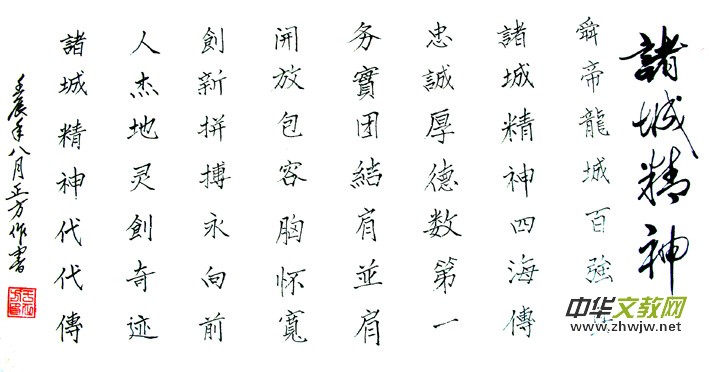 諸城精神
舜帝龍城百強
諸城精神四海傳
忠誠厚德数第一
务實团結肩並肩
開放包容胸怀寬
創新拼搏永向前
人杰地灵創奇迹
諸城精神代代傳
壬辰年八月正方作書
中华文教网
www.zhwjw.net